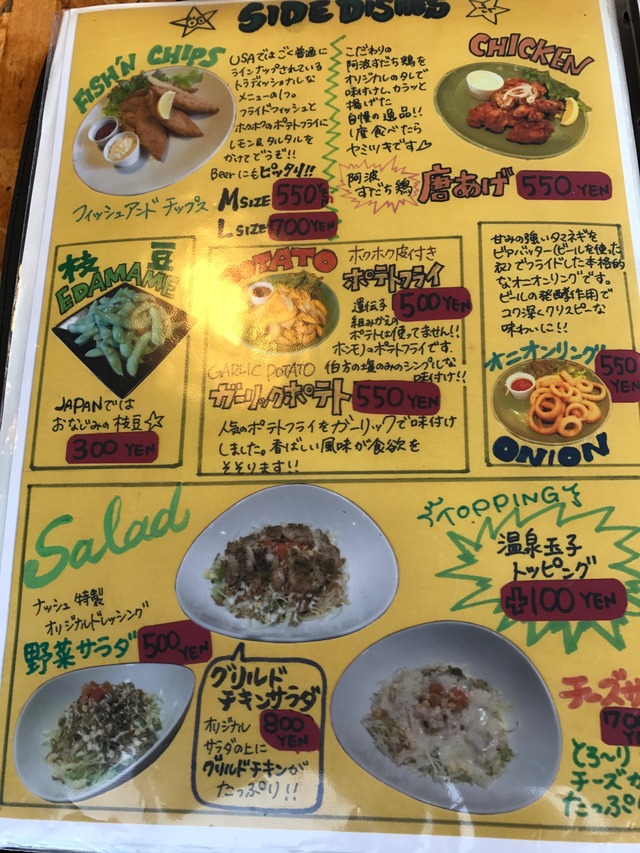 SIDE DISHES
FISH'N CHIPS
USAではごく普通に
ラインナップされている
トラディショナルな
メニューの1つ。
フライドフィッシュと
ホクホクのポテトフライに
レモン&タルタルを
かけてどうぞ!!
Beerにもピッタリ!!
フィッシュアンド チップス
M SIZE 550 YEN
L SIZE 700 YEN
こだわりの
阿波すだち鶏を
オリジナルのタレで
味付けし、カラッと
揚げた
自慢の逸品!!
1度食べたら
ヤミツキです
CHICKEN
阿波
すだち鶏
唐あげ 550 YEN
枝豆
EDAMAME
JAPANでは
おなじみの枝豆☆
300 YEN
POTATO
ホクホク皮付き
ポテトフライ
500 YEN
遺伝子
組みかえの
ポテトは使ってません!!
ホンモノのポテトフライです.
伯方の塩のみのシンプルな
味付け!!
GARLIC POTATO
ガーリックポテト 550 YEN
人気のポテトフライをガーリックで味付け
しました。香ばしい風味が食欲を
そそります!!
甘みの強いタマネギを
ビヤバッター(ビールを使った
衣)でフライドした本格的
なオニオンリングです。
ビールの発酵作用で
コク深くクリスピーな
味わいに!!
オニオンリング
550 YEN
ONION
Salad
ナッシュ特製
オリジナルドレッシング
野菜サラダ 500 YEN
グリルド
チキンサラダ
オリジナル
サラダの上に
800 YEN
グリルドチキンが
たっぷり!!
TOPPING
温泉玉子
トッピング
+100 YEN
チーズサ
70
YEN
とろ〜り
チーズ
たっぷ